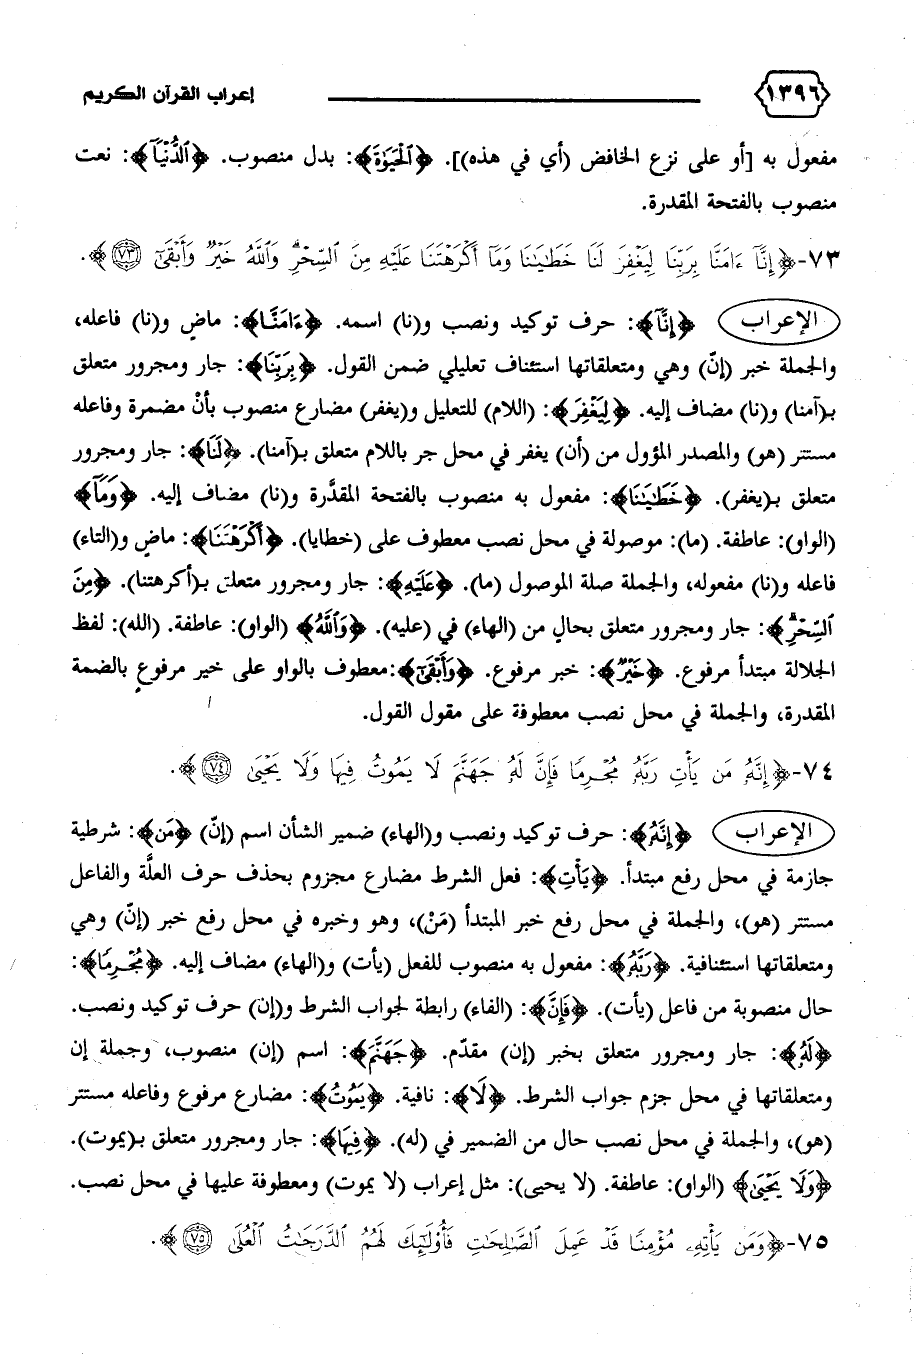 ١٣٩٦ إعراب القرآن الكريم
مفعول به [أو على نزع الخافض (أي في هذه)]. ﴿ٱلْحَيَوٰةَ﴾: بدل منصوب. ﴿ٱلدُّنْيَآ﴾: نعت
منصوب بالفتحة المقدرة.
٧٣-﴿إِنَّآ ءَامَنَّا بِرَبِّنَا لِيَغْفِرَ لَنَا خَطَٰيَٰنَا وَمَآ أَكْرَهْتَنَا عَلَيْهِ مِنَ ٱلسِّحْرِۗ وَٱللَّهُ خَيْرٌ وَأَبْقَىٰٓ ٧٣﴾.
الإعراب ﴿إِنَّآ﴾: حرف توكيد ونصب و(نا) اسمه. ﴿ءَامَنَّا﴾: ماضٍ و(نا) فاعله،
والجملة خبر (إنّ) وهي ومتعلقاتها استئناف تعليلي ضمن القول. ﴿بِرَبِّنَا﴾: جار ومجرور متعلق
بـ(آمنا) و(نا) مضاف إليه. ﴿لِيَغْفِرَ﴾: (اللام) للتعليل و(يغفر) مضارع منصوب بأنْ مضمرة وفاعله
مستتر (هو) والمصدر المؤول من (أن) يغفر في محل جر باللام متعلق بـ(آمنا). ﴿لَنَا﴾: جار ومجرور
متعلق بـ(يغفر). ﴿خَطَٰيَٰنَا﴾: مفعول به منصوب بالفتحة المقدَّرة و(نا) مضاف إليه. ﴿وَمَآ﴾
(الواو): عاطفة. (ما): موصولة في محل نصب معطوف على (خطايا). ﴿أَكْرَهْتَنَا﴾: ماضٍ و(التاء)
فاعله و(نا) مفعوله، والجملة صلة الموصول (ما). ﴿عَلَيْهِ﴾: جار ومجرور متعلق بـ(أكرهتنا). ﴿مِنَ
ٱلسِّحْرِۗ﴾: جار ومجرور متعلق بحالٍ من (الهاء) في (عليه). ﴿وَٱللَّهُ﴾ (الواو): عاطفة. (الله): لفظ
الجلالة مبتدأ مرفوع. ﴿خَيْرٌ﴾: خبر مرفوع. ﴿وَأَبْقَىٰٓ﴾:معطوف بالواو على خير مرفوعٍ بالضمة
المقدرة، والجملة في محل نصب معطوفة على مقول القول.
٧٤-﴿إِنَّهُۥ مَن يَأْتِ رَبَّهُۥ مُجْرِمًا فَإِنَّ لَهُۥ جَهَنَّمَ لَا يَمُوتُ فِيهَا وَلَا يَحْيَىٰ ٧٤﴾.
الإعراب ﴿إِنَّهُۥ﴾: حرف توكيد ونصب و(الهاء) ضمير الشأن اسم (إنّ) ﴿مَن﴾: شرطية
جازمة في محل رفع مبتدأ. ﴿يَأْتِ﴾: فعل الشرط مضارع مجزوم بحذف حرف العلَّة والفاعل
مستتر (هو)، والجملة في محل رفع خبر المبتدأ (مَنْ)، وهو وخبره في محل رفع خبر (إنّ) وهي
ومتعلقاتها استئنافية. ﴿رَبَّهُۥ﴾: مفعول به منصوب للفعل (يأت) و(الهاء) مضاف إليه. ﴿مُجْرِمًا﴾:
حال منصوبة من فاعل (يأت). ﴿فَإِنَّ﴾: (الفاء) رابطة لجواب الشرط و(إن) حرف توكيد ونصب.
﴿لَهُۥ﴾: جار ومجرور متعلق بخبر (إن) مقدّم. ﴿جَهَنَّمَ﴾: اسم (إن) منصوب، وجملة إن
ومتعلقاتها في محل جزم جواب الشرط. ﴿لَا﴾: نافية. ﴿يَمُوتُ﴾: مضارع مرفوع وفاعله مستتر
(هو)، والجملة في محل نصب حال من الضمير في (له). ﴿فِيهَا﴾: جار ومجرور متعلق بـ(يموت).
﴿وَلَا يَحْيَىٰ﴾ (الواو): عاطفة. (لا يحيى): مثل إعراب (لا يموت) ومعطوفة عليها في محل نصب.
٧٥-﴿وَمَن يَأْتِهِۦ مُؤْمِنًا قَدْ عَمِلَ ٱلصَّٰلِحَٰتِ فَأُو۟لَٰٓئِكَ لَهُمُ ٱلدَّرَجَٰتُ ٱلْعُلَىٰ ٧٥﴾.